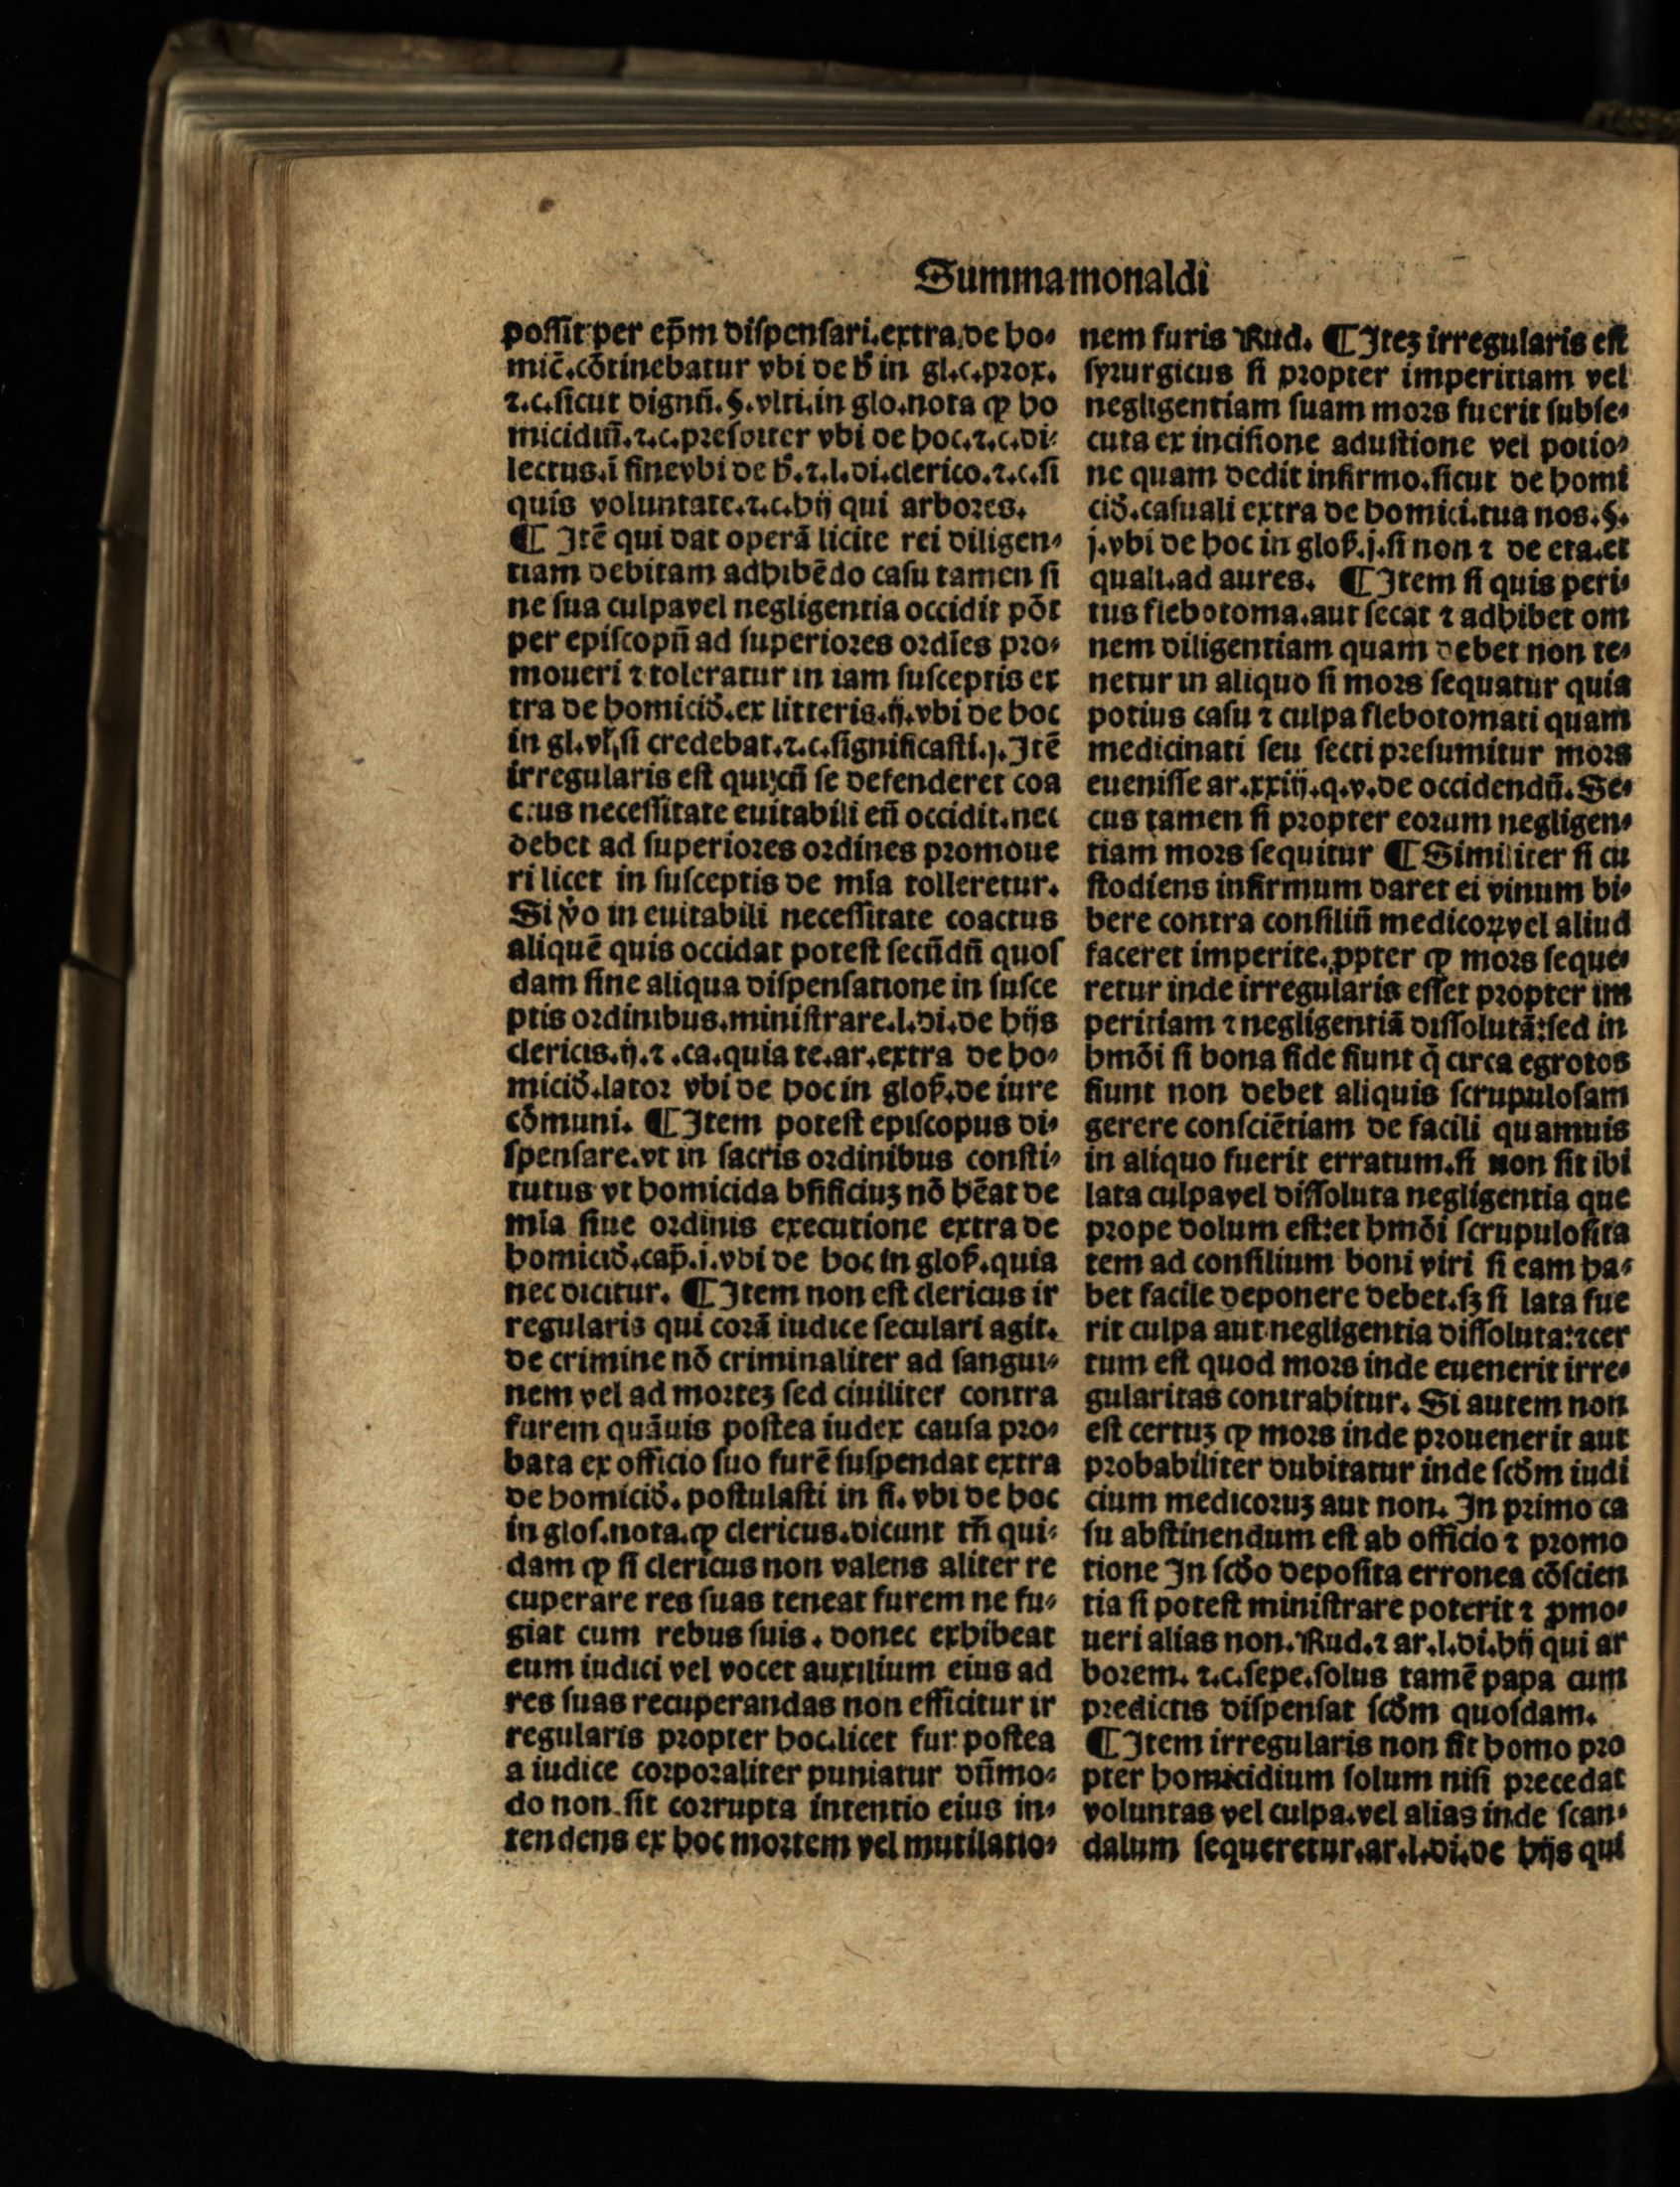 Summa monaldi
possit per ep̄m dispensari.extra.de ho-
mic̄.cōtinebatur vbi de h̓ in gl.c.prox.
⁊.c.sicut dignū.§.vlti.in glo.nota ꝙ ho
micidiū.⁊.c.presbiter vbi de hoc.⁊.c.di-
lectus.ī fine vbi de h̓.⁊.l.di.clerico.⁊.c.si
quis voluntate.⁊.c.hij qui arbores.
¶ Itē qui dat operā licite rei diligen-
tiam debitam adhibēdo casu tamen si
ne sua culpa vel negligentia occidit pōt
per episcopū ad superiores ordīes pro-
moueri ⁊ toleratur in iam susceptis ex
tra de homicid̄.ex litteris.ij.vbi de hoc
in gl.vl̓.si credebat.⁊.c.significasti.j.Itē
irregularis est qui cū se defenderet coa
ctus necessitate euitabili eū occidit.nec
debet ad superiores ordines promoue
ri licet in susceptis de mīa tolleretur.
Si v̓o in euitabili necessitate coactus
aliquē quis occidat potest secūdū quos
dam sine aliqua dispensatione in susce
ptis ordinibus.ministrare.l.di.de hijs
clericis.ij.⁊.ca.quia te.ar.extra de ho-
micid̄.lator vbi de hoc in glos̄.de iure
cōmuni. ¶ Item potest episcopus di-
spensare.vt in sacris ordinibus consti-
tutus vt homicida bn̄ficiuꝫ nō hēat de
mīa siue ordinis executione extra de
homicid̄.cap̄.i.vbi de hoc in glos̄.quia
nec dicitur. ¶ Item non est clericus ir
regularis qui corā iudice seculari agit.
de crimine nō criminaliter ad sangui-
nem vel ad morteꝫ sed ciuiliter contra
furem quāuis postea iudex causa pro-
bata ex officio suo furē suspendat extra
de homicid̄. postulasti in fi. vbi de hoc
in glos.nota.ꝙ clericus.dicunt tn̄ qui-
dam ꝙ si clericus non valens aliter re
cuperare res suas teneat furem ne fu-
giat cum rebus suis. donec exhibeat
eum iudici vel vocet auxilium eius ad
res suas recuperandas non efficitur ir
regularis propter hoc.licet fur postea
a iudice corporaliter puniatur dūmo-
do non sit corrupta intentio eius in-
tendens ex hoc mortem vel mutilatio-
nem furis Rud. ¶ Iteꝫ irregularis est
syrurgicus si propter imperitiam vel
negligentiam suam mors fuerit subse-
cuta ex incisione adustione vel potio-
ne quam dedit infirmo.sicut de homi
cid̄.casuali extra de homici.tua nos.§.
j.vbi de hoc in glos̄.j.si non ⁊ de eta.et
quali.ad aures. ¶ Item si quis peri-
tus flebotoma.aut secat ⁊ adhibet om
nem diligentiam quam debet non te-
netur in aliquo si mors sequatur quia
potius casu ⁊ culpa flebotomati quam
medicinati seu secti presumitur mors
euenisse ar.xxiij.q.v.de occidendū. Se-
cus tamen si propter eorum negligen-
tiam mors sequitur ¶ Similiter si cu
stodiens infirmum daret ei vinum bi-
bere contra consiliū medicoꝝ vel aliud
faceret imperite.ꝓpter ꝙ mors seque-
retur inde irregularis esset propter im
peritiam ⁊ negligentiā dissolutā:sed in
hmōi si bona fide fiunt q̄ circa egrotos
fiunt non debet aliquis scrupulosam
gerere consciētiam de facili quamuis
in aliquo fuerit erratum.si non sit ibi
lata culpa vel dissoluta negligentia que
prope dolum est:et hmōi scrupulosita
tem ad consilium boni viri si eam ha-
bet facile deponere debet.sꝫ si lata fue
rit culpa aut negligentia dissoluta:⁊cer
tum est quod mors inde euenerit irre-
gularitas contrahitur. Si autem non
est certuꝫ ꝙ mors inde prouenerit aut
probabiliter dubitatur inde scd̄m iudi
cium medicoruꝫ aut non. In primo ca
su abstinendum est ab officio ⁊ promo
tione In scd̄o deposita erronea cōscien
tia si potest ministrare poterit ⁊ ꝓmo-
ueri alias non. Rud.⁊ ar.l.di.hij qui ar
borem. ⁊.c.sepe.solus tamē papa cum
predictis dispensat scd̄m quosdam.
¶ Item irregularis non fit homo pro
pter homicidium solum nisi precedat
voluntas vel culpa.vel alias inde scan-
dalum sequeretur.ar.l.di.de hijs qui